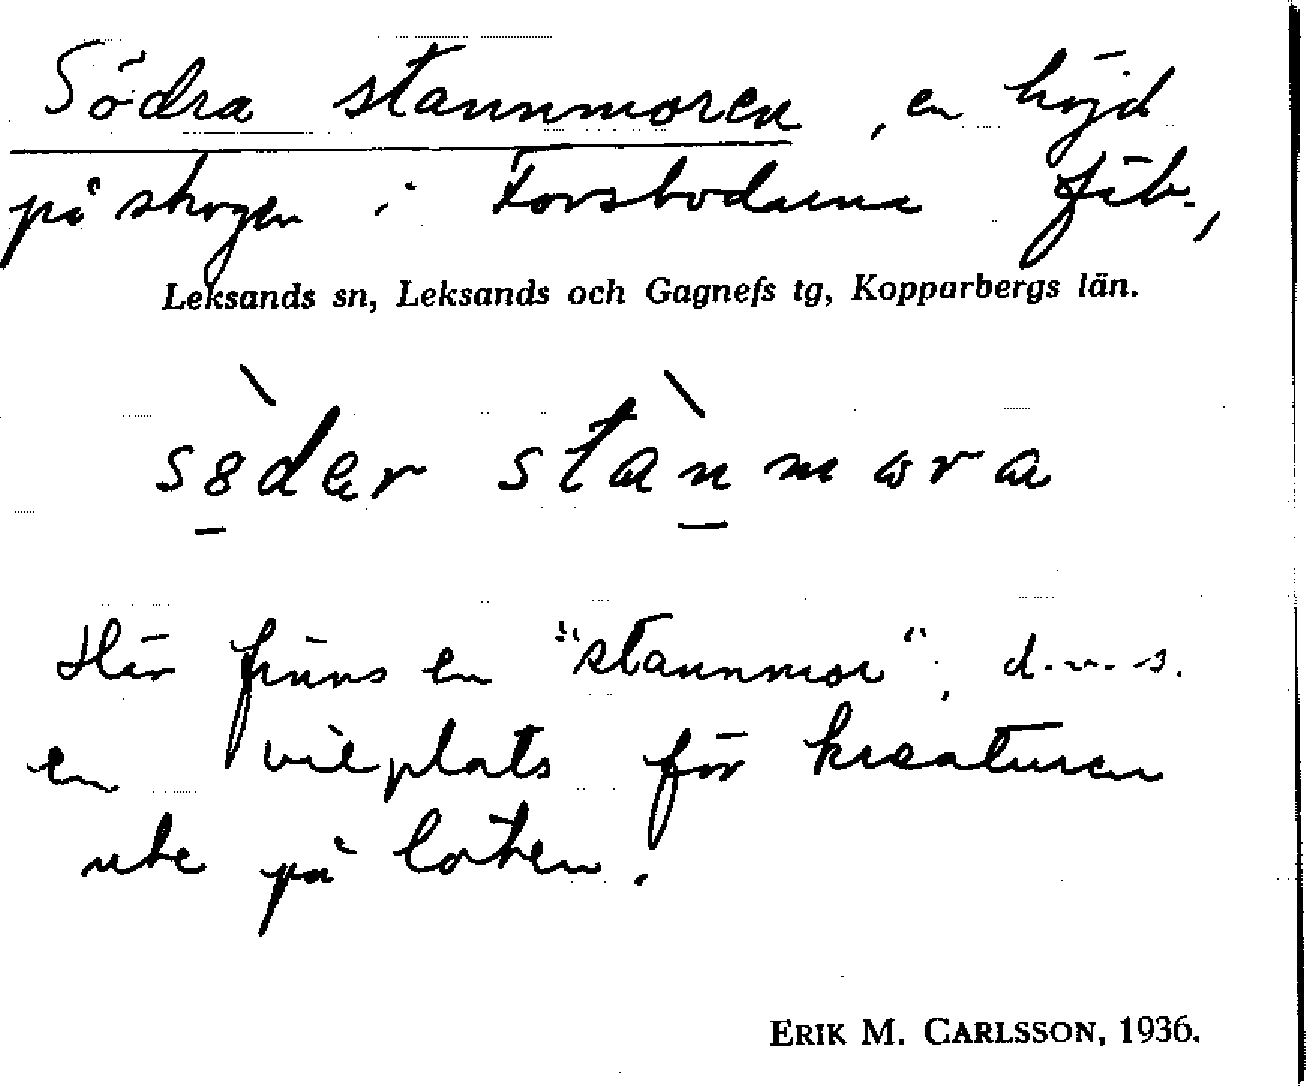 Södra stannmoren, en höjd
på skogen i Forsbodarna fäb.,
Leksands sn, Leksands och Gagnefs tg, Kopparbergs län.
sødær stànmɷra
Här finns en "stannmor", d.v.s.
en vileplats för kreaturen
ute på loten.
ERIK M. CARLSSON, 1936.